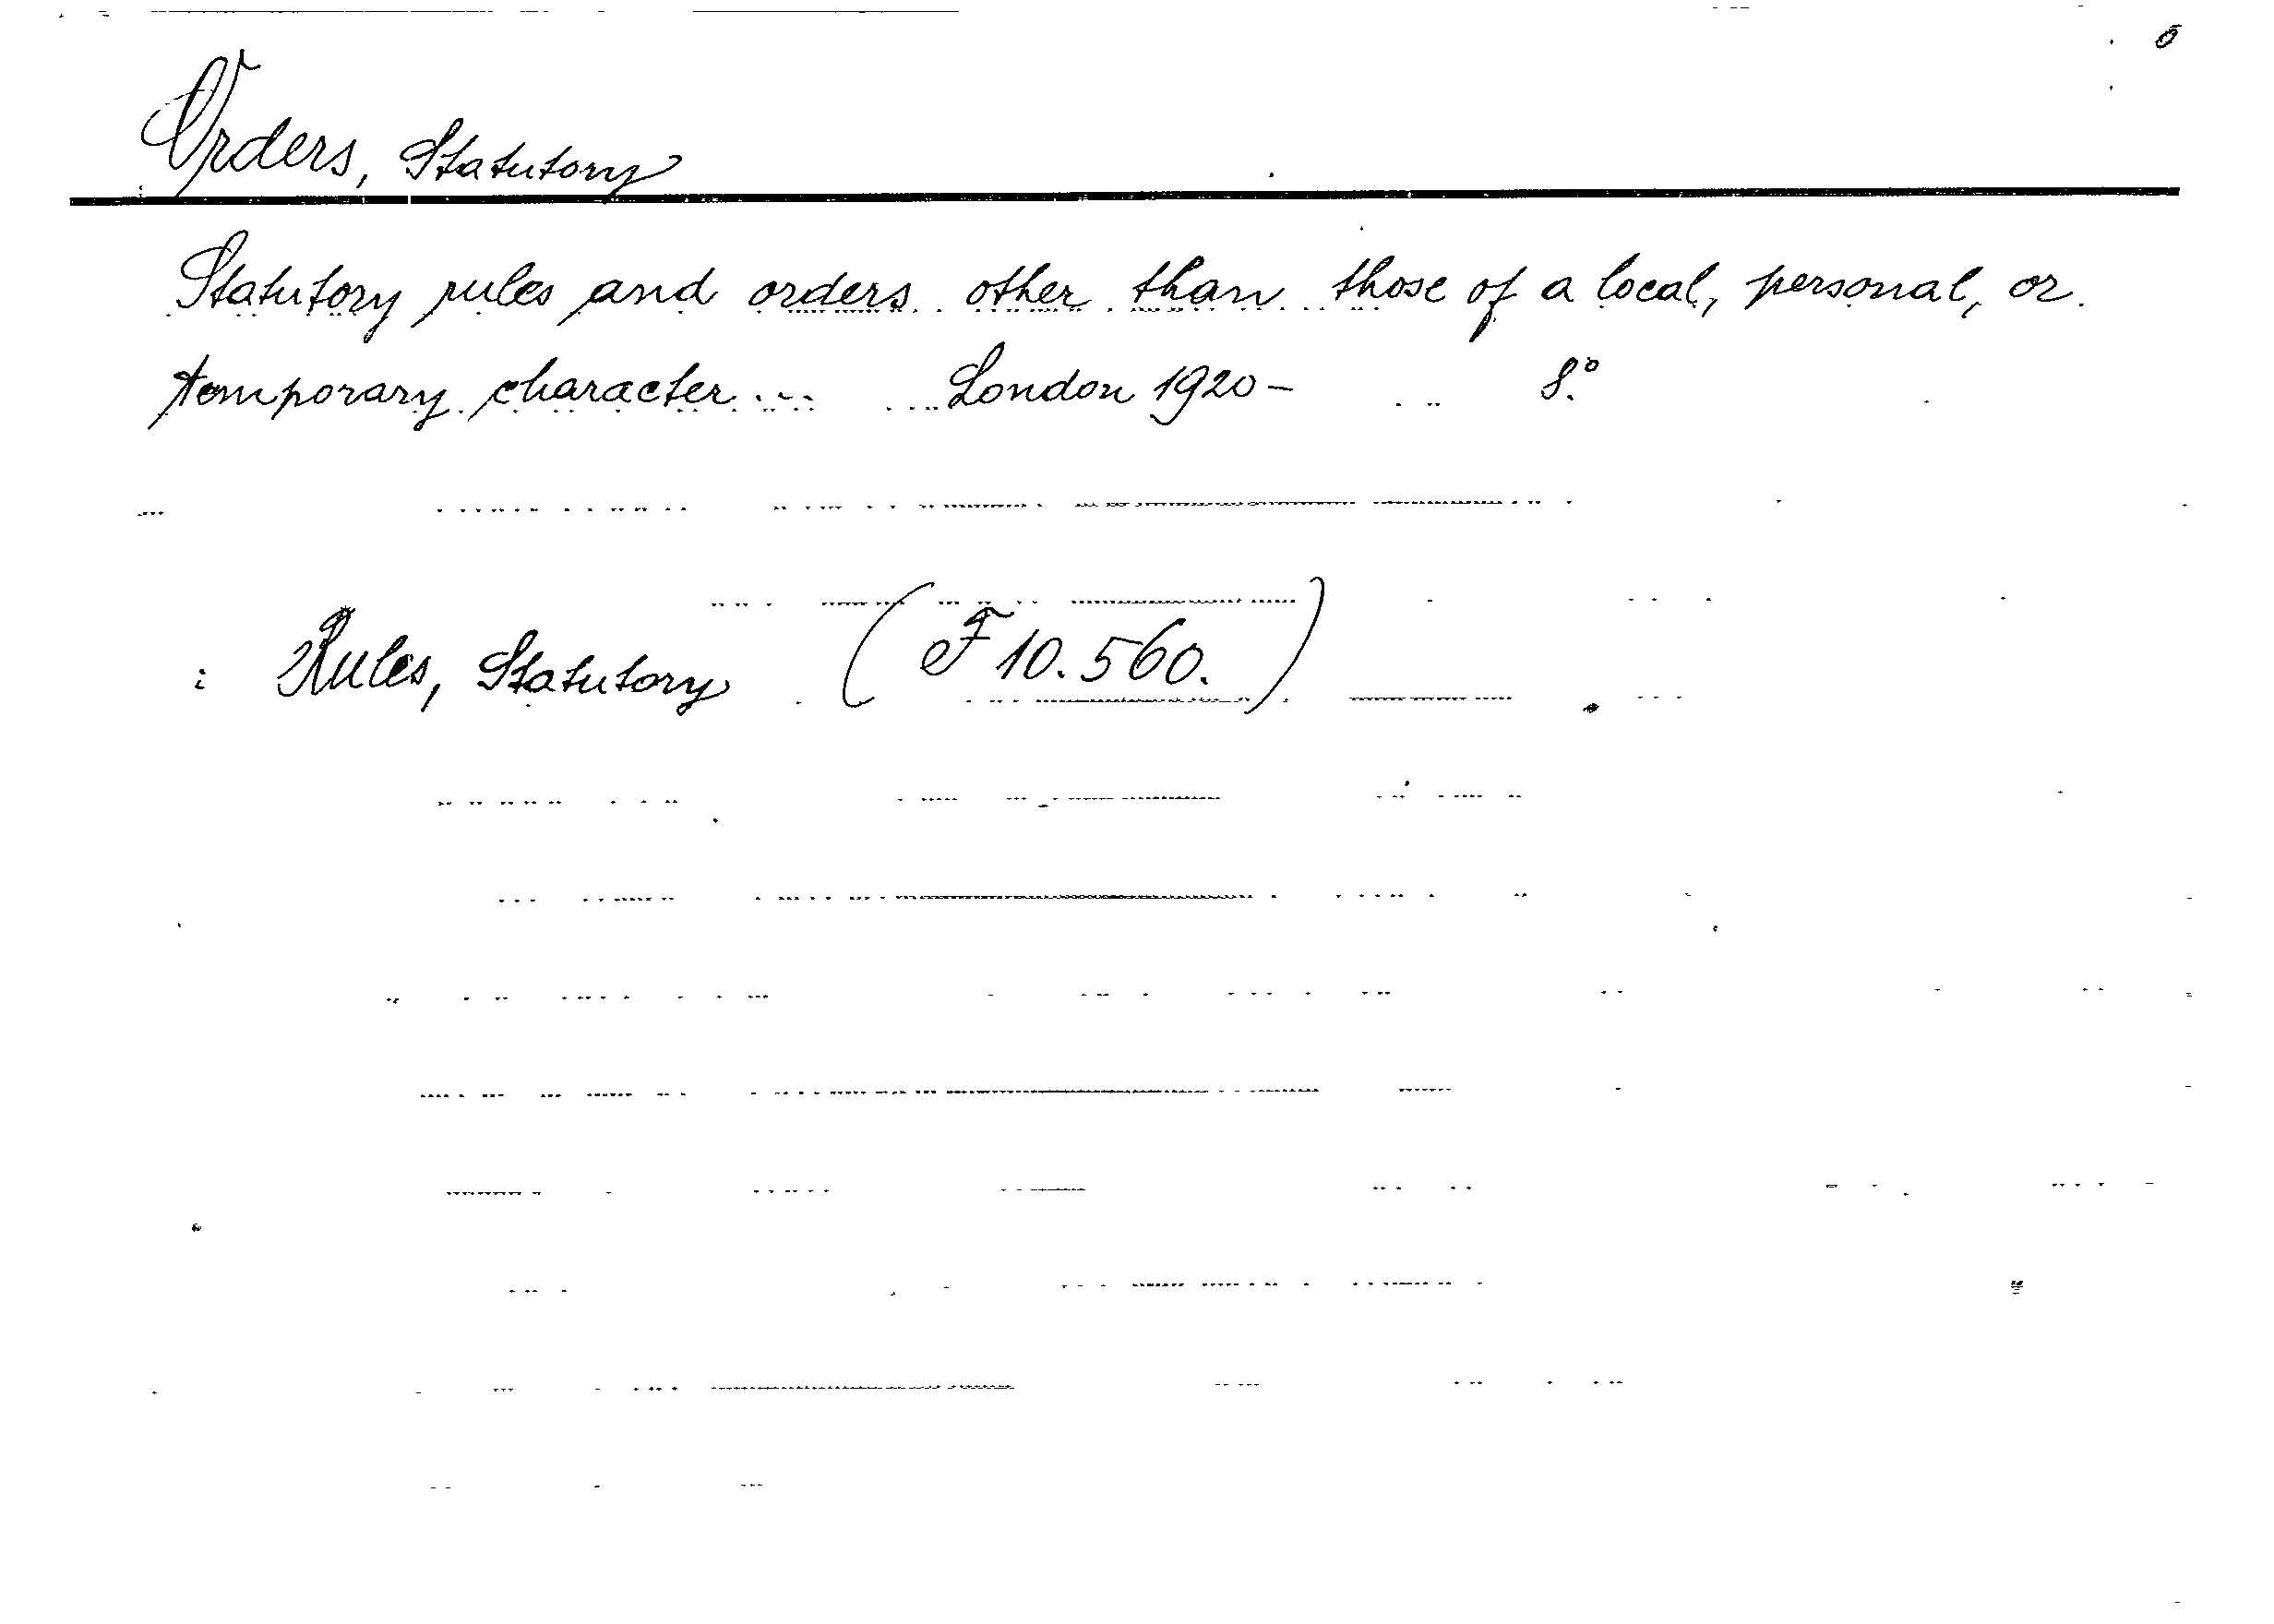 Orders, Statutory
Statutory rules and orders other than those of a local, personal, or
temporary character ... London 1920 – 8.°
i Rules, Statutory (F 10.560.)